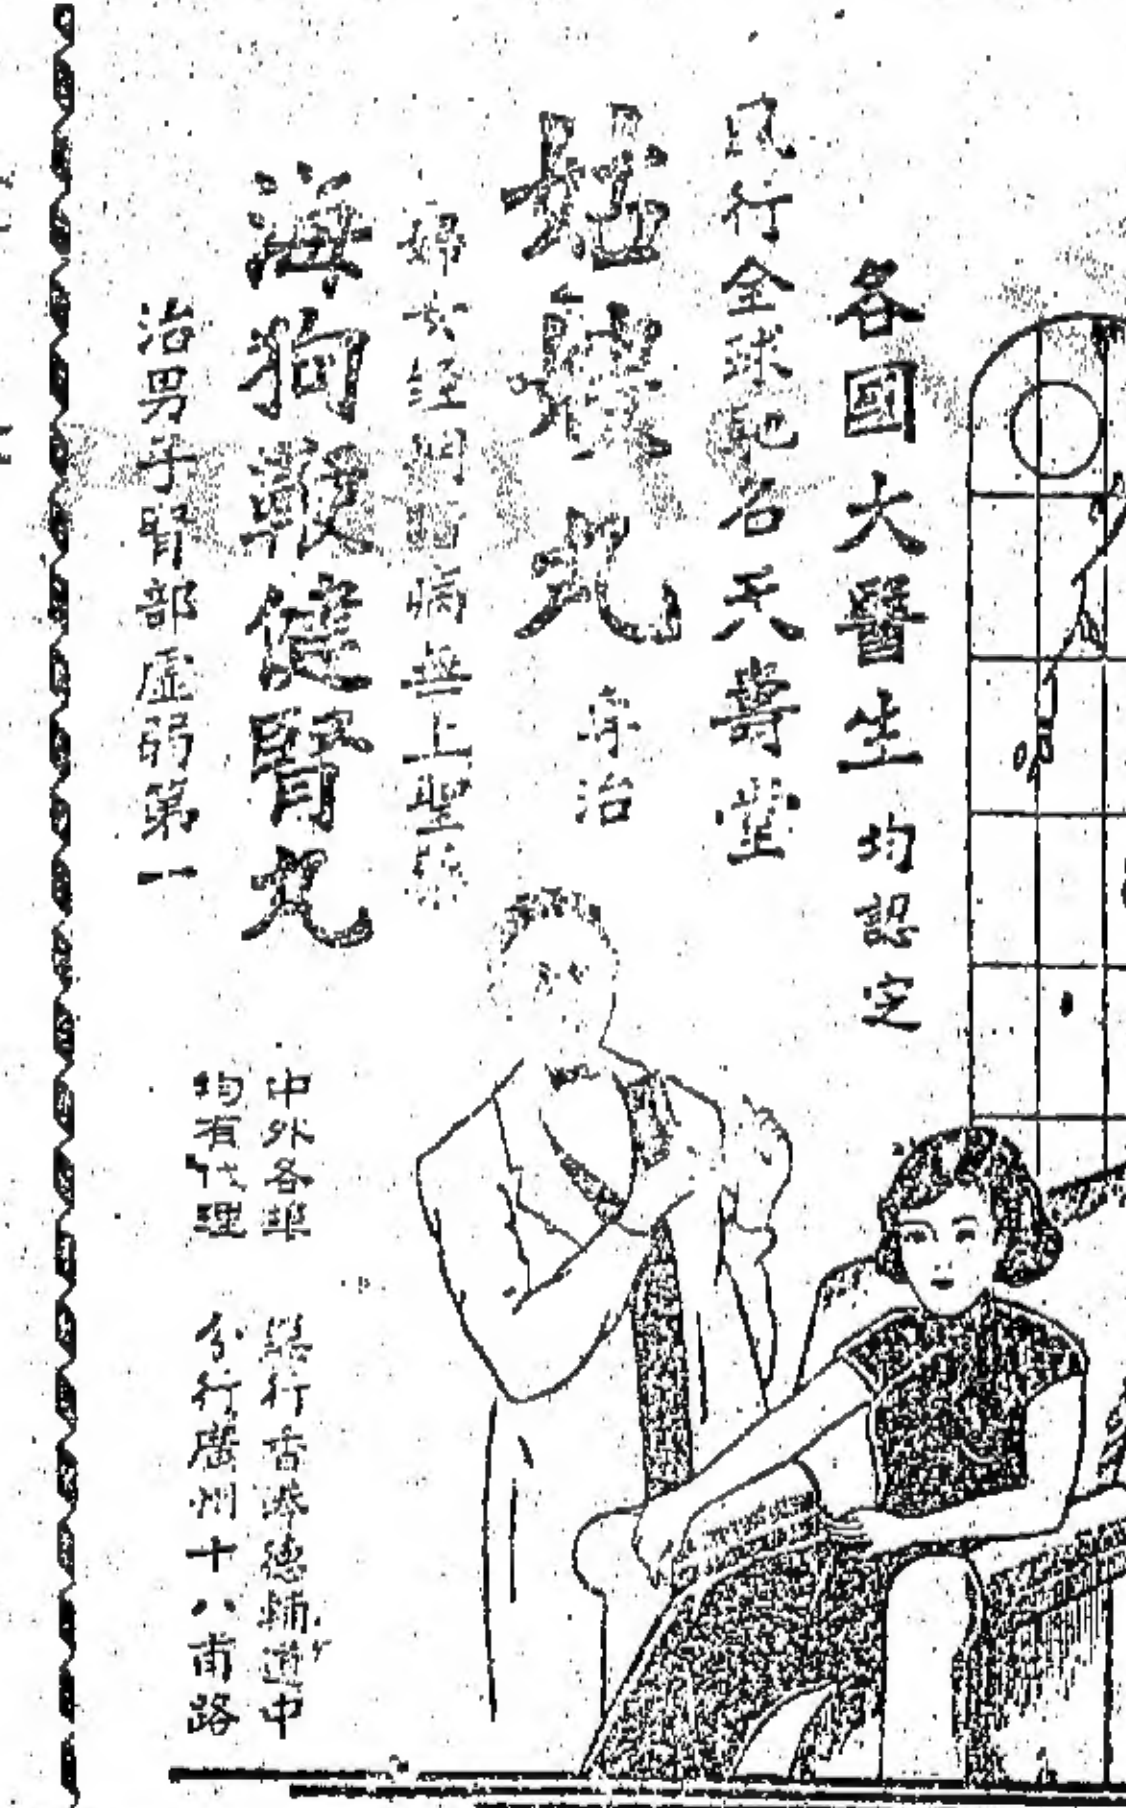 各國大醫生均認定
風行全球馳名天壽堂
姑嫂丸
專治
婦女 病無上聖藥
海狗鞭健腎丸
治男子腎部虛弱第一
中外各埠
均有代理
總行香港德輔道中
分行廣州十八甫路